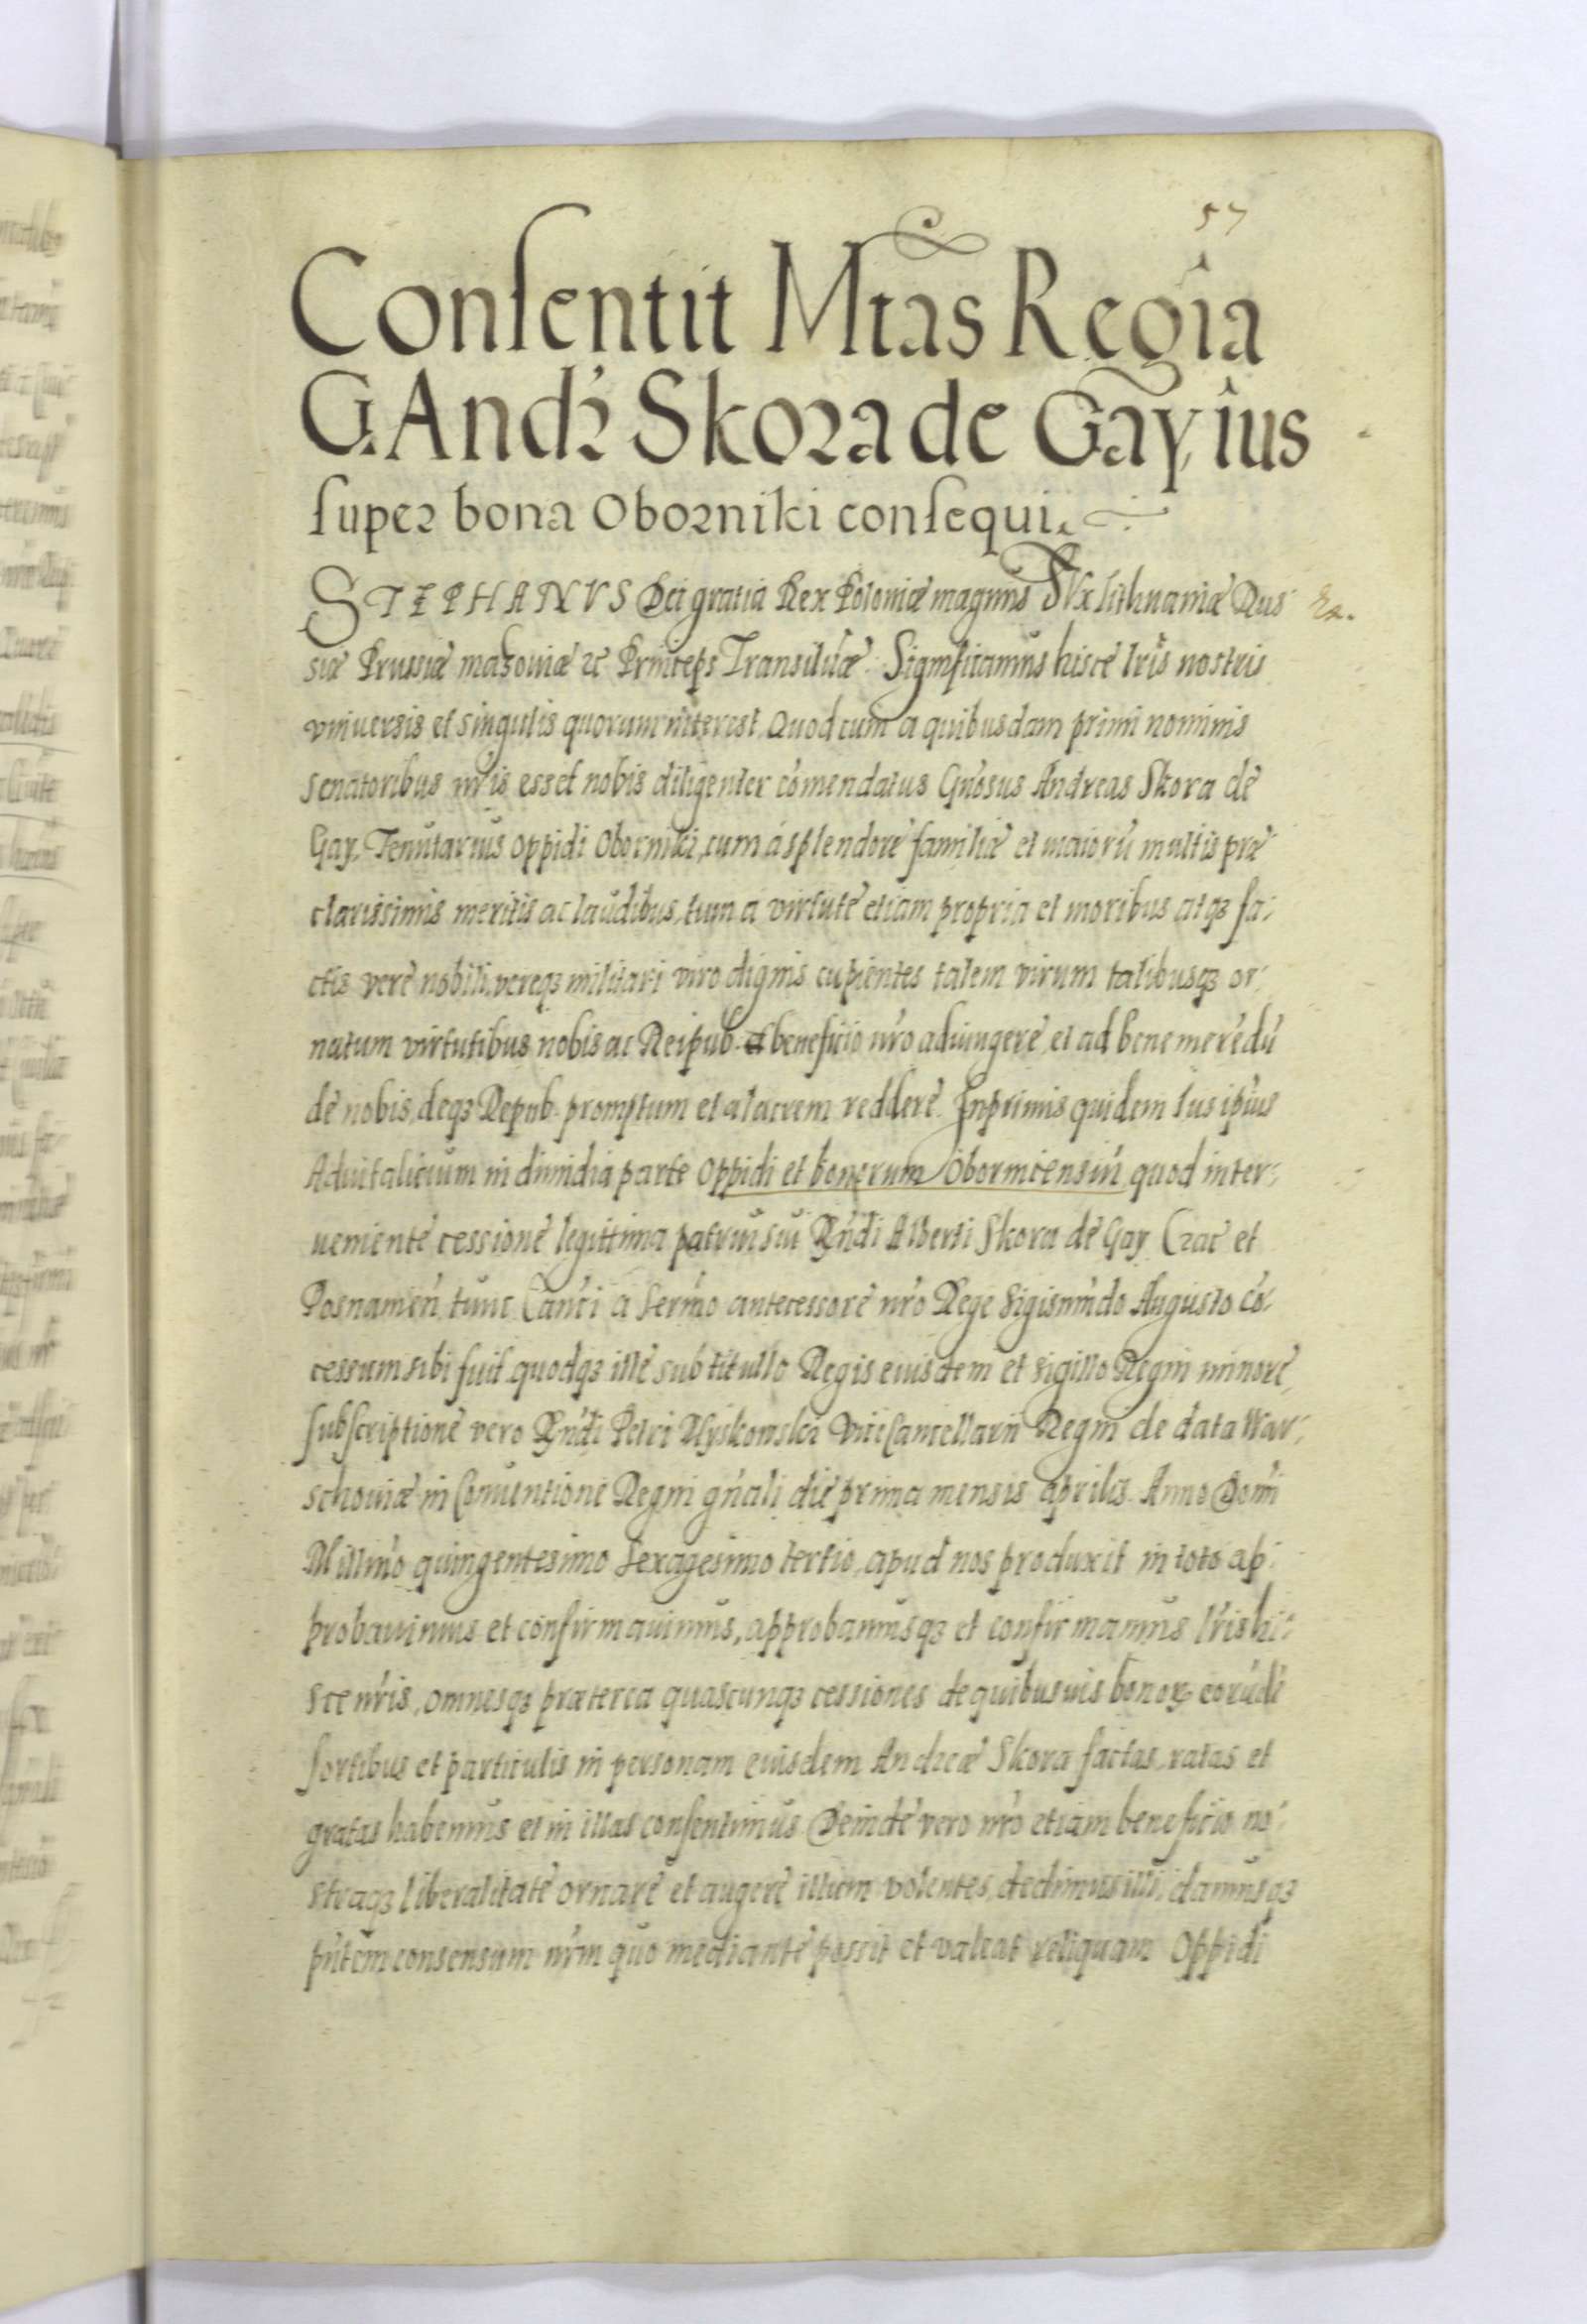 57
Consentit Mtas Regia
G. Andr Skora de Gay, ius
super bona Oborniki consequi.
STEPHANVS Dei gratia Rex Poloniæ magnus Dvx Lithuaniæ Rus
Ex.
siæ Prussiæ mazoviæ &c Princeps Transilvæ. Significamus hisce lris nostris
vniuersis et singulis quorum interest, Quod cum a quibusdam primi nominis
senatoribus nris esset nobis diligenter comendatus Gnosus Andreas Skora de
Gay, Tenutarius oppidi Oborniki, cum á splendore familiæ et maiorū multis præ
clarissimis meritis ac laudibus, tum a virtute etiam propria et moribus atqz fa:
ctis vere nobili, vereqz militari viro dignis cupientes talem virum talibusqz or:
natum virtutibus nobis ac Reipub. beneficio nro adiungere, et ad bene merēdū
de nobis, deqz Repub. promptum et alacrem reddere. Inprimis quidem Ius ipius
Aduitalicium in dimidia parte oppidi et bonorum Oborniceńsiū, quod inter:
ueniente cessione legittima patrui sui Rndi Alberti Skora de Gay Crac et
Posnamen, tunc Canci a Sermo antecessore nro Rege Sigismūdo Augusto cō:
cessum sibi fuit, quodqz ille sub titullo Regis eiusdem et sigillo Regni minore,
subscriptione vero Rndi Petri Myskowski ViceCancellarii Regni de data War:
schoviæ in Conuentione Regni gnali die prima mensis aprilis. Anno Domi
Millimo quingentesimo sexagesimo tertio, apud nos produxit in toto ap:
probavimus et confirmauimus, approbamusqz et confirmamus lris hi:
sce nris, omnesqz præterea quascunqz cessiones de quibusuis bonorz eorūdē
sortibus et particulis in personam eiusdem Andreæ Skora factas, ratas et
gratas habemus et in illas consentimus. Deinde vero nro etiam beneficio no:
straqz liberalitate ornare et augere illum volentes, dedimus illi, damusqz
pntem consensum nrm quo mediante possit et valeat reliquam Oppidi